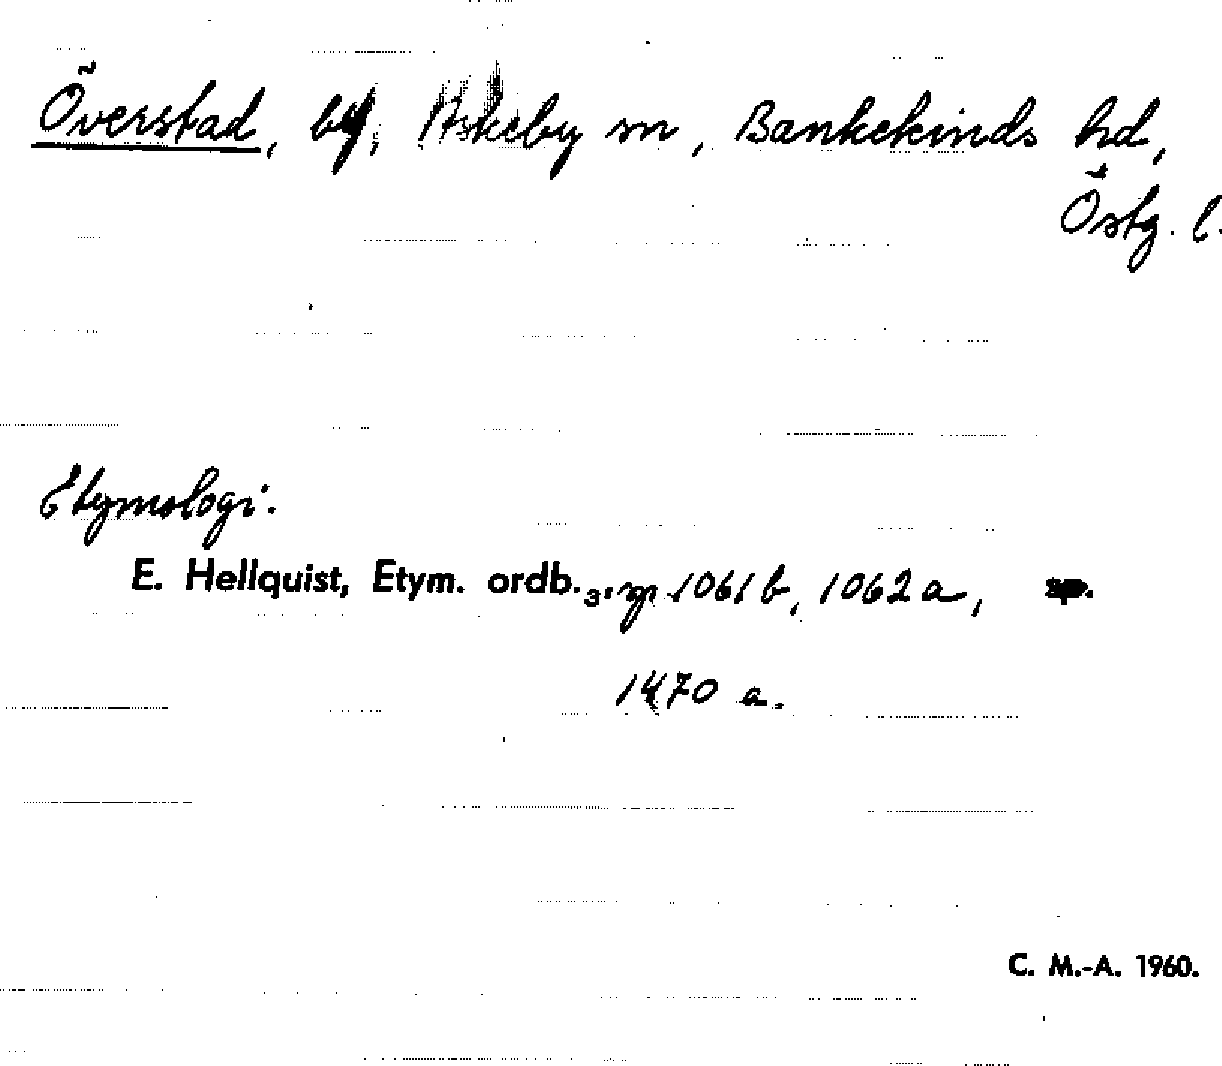 Överstad, by, Askeby sn, Bankekinds hd,
Östg. l.
Etymologi.
E. Hellquist, Etym. ordb.₃, sp. 1061 b, 1062 a,
1470 a.
C. M.-A. 1960.